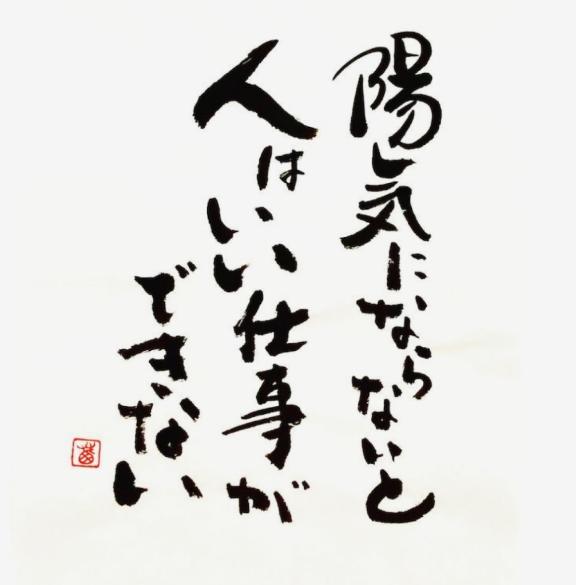 陽気にならないと
人はいい仕事が
できない